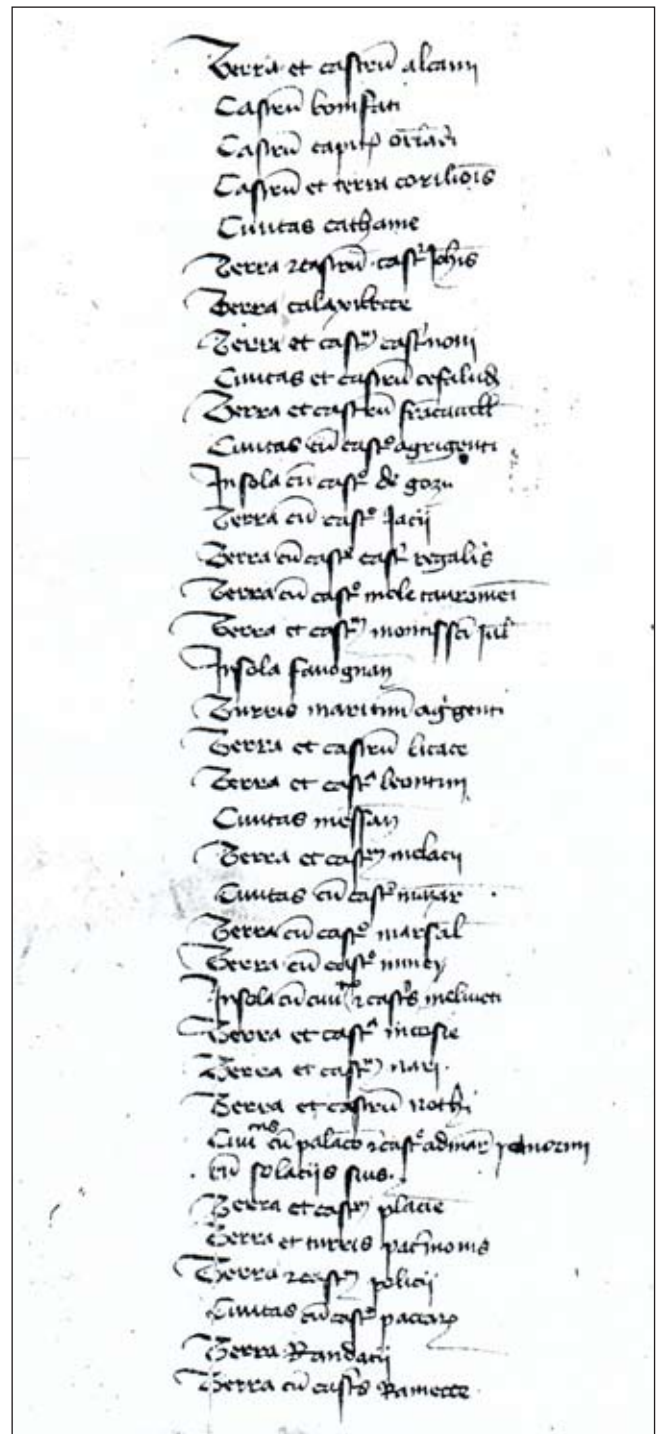 Terra et castrū alcami
Castrū bonifati
Castrū capit orlādi
Castrū et terra coriliōis
Civitas cathanie
Terra et castrū castͥ Joħis
Terra calaxibecte
Terra et castͫ castͥ novi
Civitas et castrū cefalud
Terra et castrū frācavill
Civitas cū castº agrigenti
Insola cū castº de gozu
Terra cū castº Jacii
Terra cū castº castͥ regalis
Terra cū castº mole tauromēi
Terra et castͫ montis scī Jul
Insola favognan
Turris maritim agͥgenti
Terra et castrū licate
Terra et castͫ leontini
Civitas messan
Terra et castͫ melacii
Civitas cū castº mazar
Terra cū castº marsal
Terra cū castº minei
Insola cū civitᵉ et castͥs meliveti
Terra et castͫ nicosie
Terra et castͫ nari
Terra et castrū nothi
Civitas cū palacio et castº admar panormi
cū solaciis suis
Terra et castͫ placie
Terra et turris pacͥnonis
Terra et castͫ policii
Civitas cū castº pactar
Terra Randacii
Terra cū castͥs Ramecte